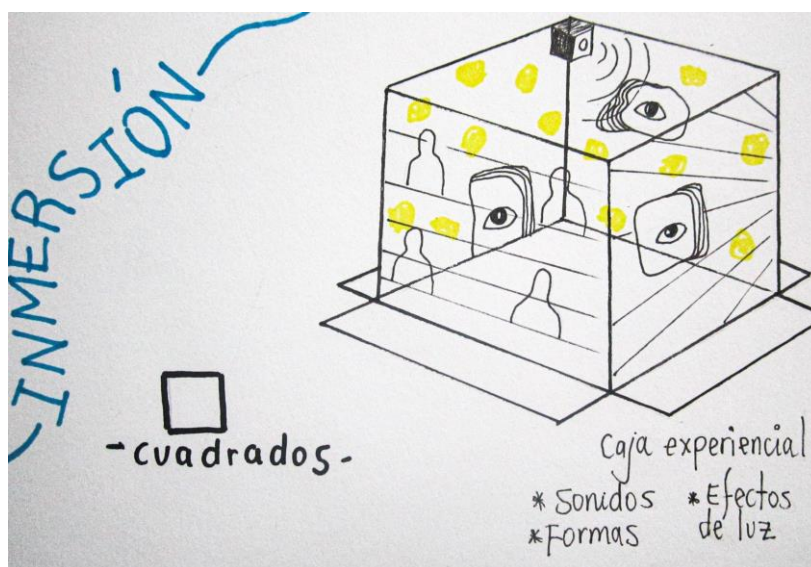 INMERSIÓN
-cuadrados-
Caja experiencial
* Sonidos * Efectos
* Formas de luz